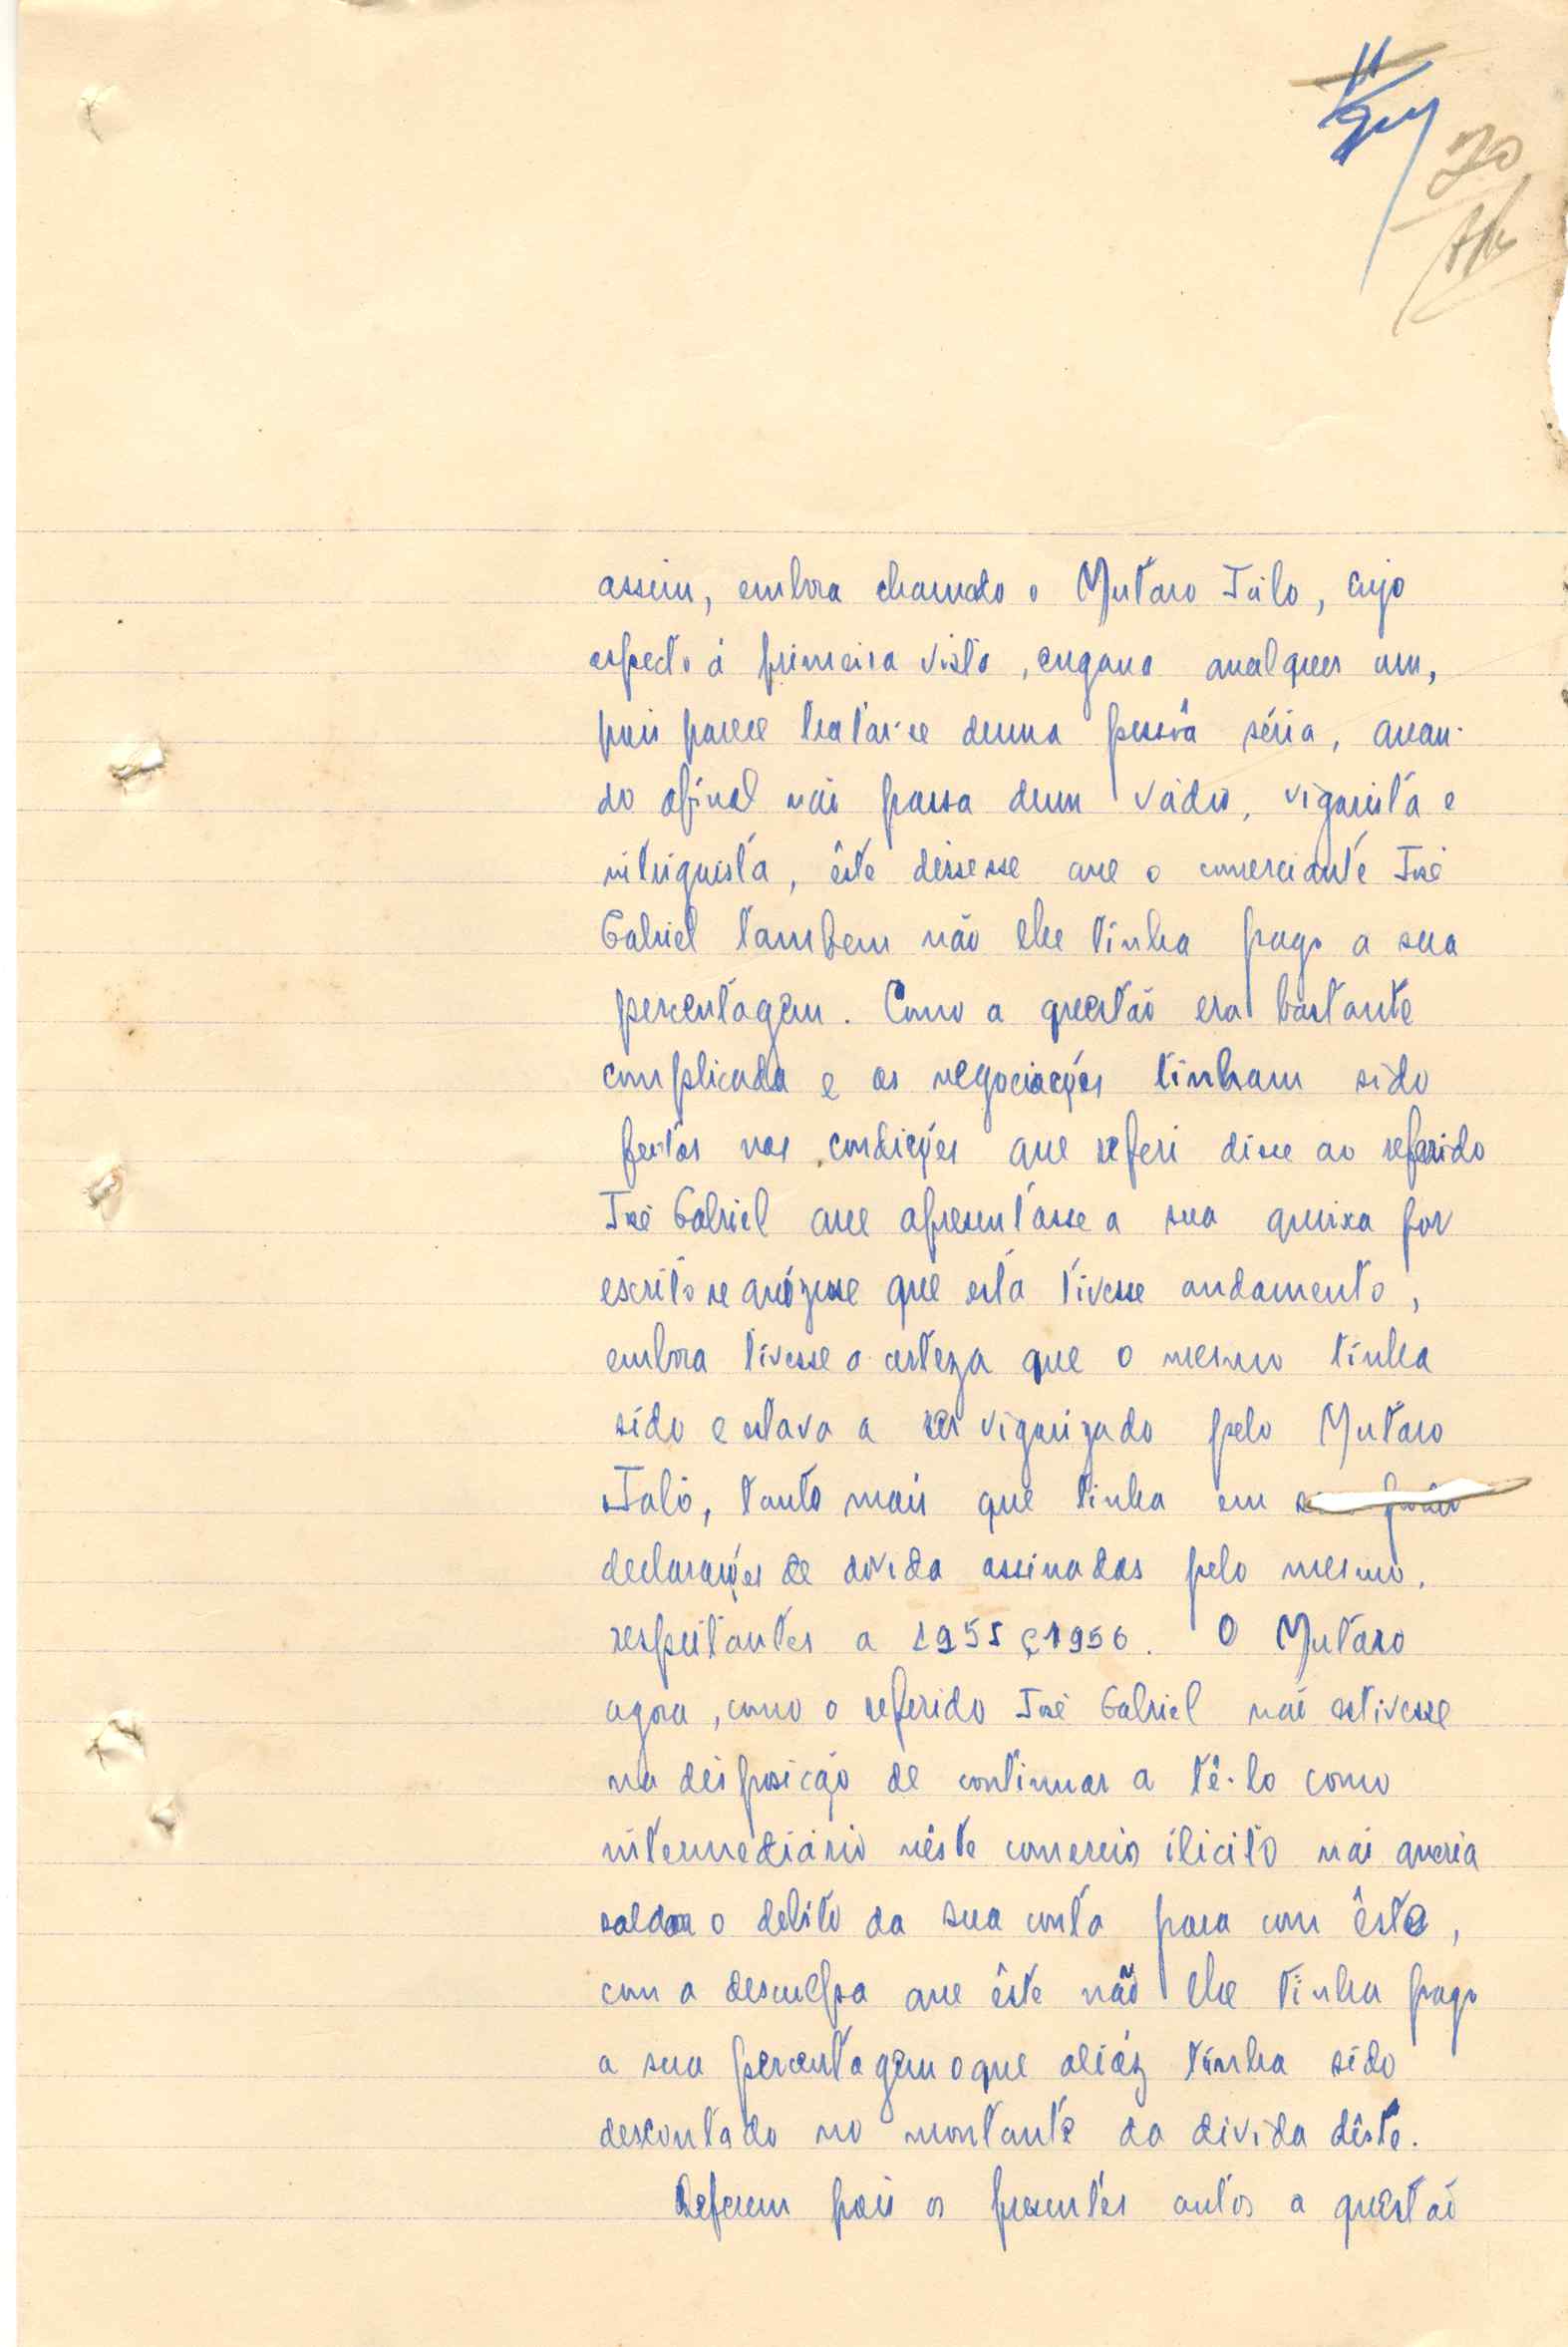 70
assim, embora chamado o Mutaro Jálo, cujo
aspecto á primeira vista, engana qualquer um,
pois parece tratar-se duma pessôa séria, quan-
do afinal não passa dum vádio, vigarista e
intriguista, êste dissesse que o comerciante José
Gabriel tambem não lhe tinha pago a sua
percentagem. Como a questão era bastante
complicada e as negociações tinham sido
feitas nas condições que referi disse ao referido
José Gabriel que apresentasse a sua queixa por
escrito se quizesse que esta tivesse andamento,
embora tivesse a certeza que o mesmo tinha
sido e estava a ser vigarizado pelo Mutaro
Jaló, tanto mais que tinha em
declarações de divida assinadas pelo mesmo,
respeitantes a 1955 e 1956. O Mutaro
agora, como o referido José Gabriel não estivesse
na disposição de continuar a tê-lo como
intermediário nêste comercio ilicito não queria
saldar o debito da sua conta para com êste,
com a desculpa que êste não lhe tinha pago
a sua percentagem o que aliáz tinha sido
descontado no montante da divida dêste.
Referem pois os presentes autos a questão